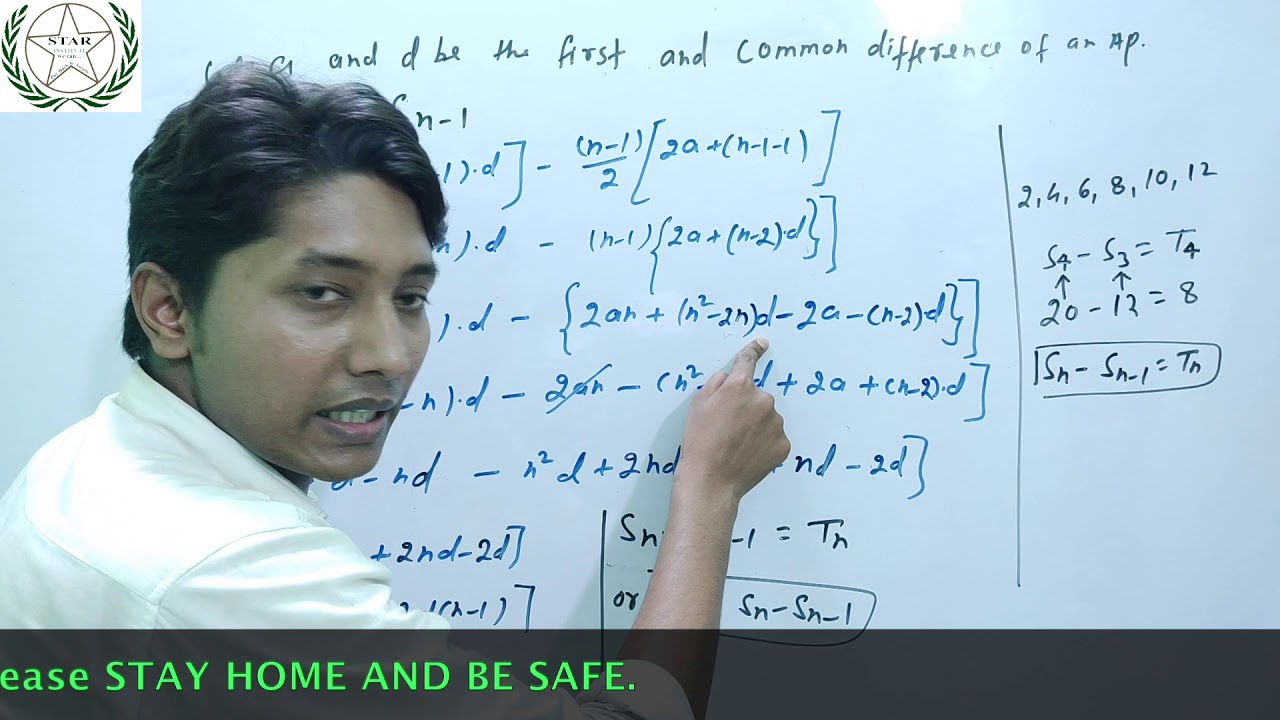 STAR
INSTITUTE
we can...
and d be the first and common difference of an AP.
n-1
1)·d] - (n-1)/2 [2a+(n-1-1)]
n)·d - (n-1){2a+(n-2)·d}]
)·d - {2an + (n²-2n)d - 2a - (n-2)·d}]
-n)·d - 2an - (n² d + 2a + (n-2)·d]
-nd - n²d + 2nd nd - 2d]
+ 2nd - 2d]
(n-1)]
Sn -1 = Tn
or Sn - Sn-1
2, 4, 6, 8, 10, 12
S4 - S3 = T4
↑ ↑
20 - 12 = 8
Sn - Sn-1 = Tn
ease STAY HOME AND BE SAFE.